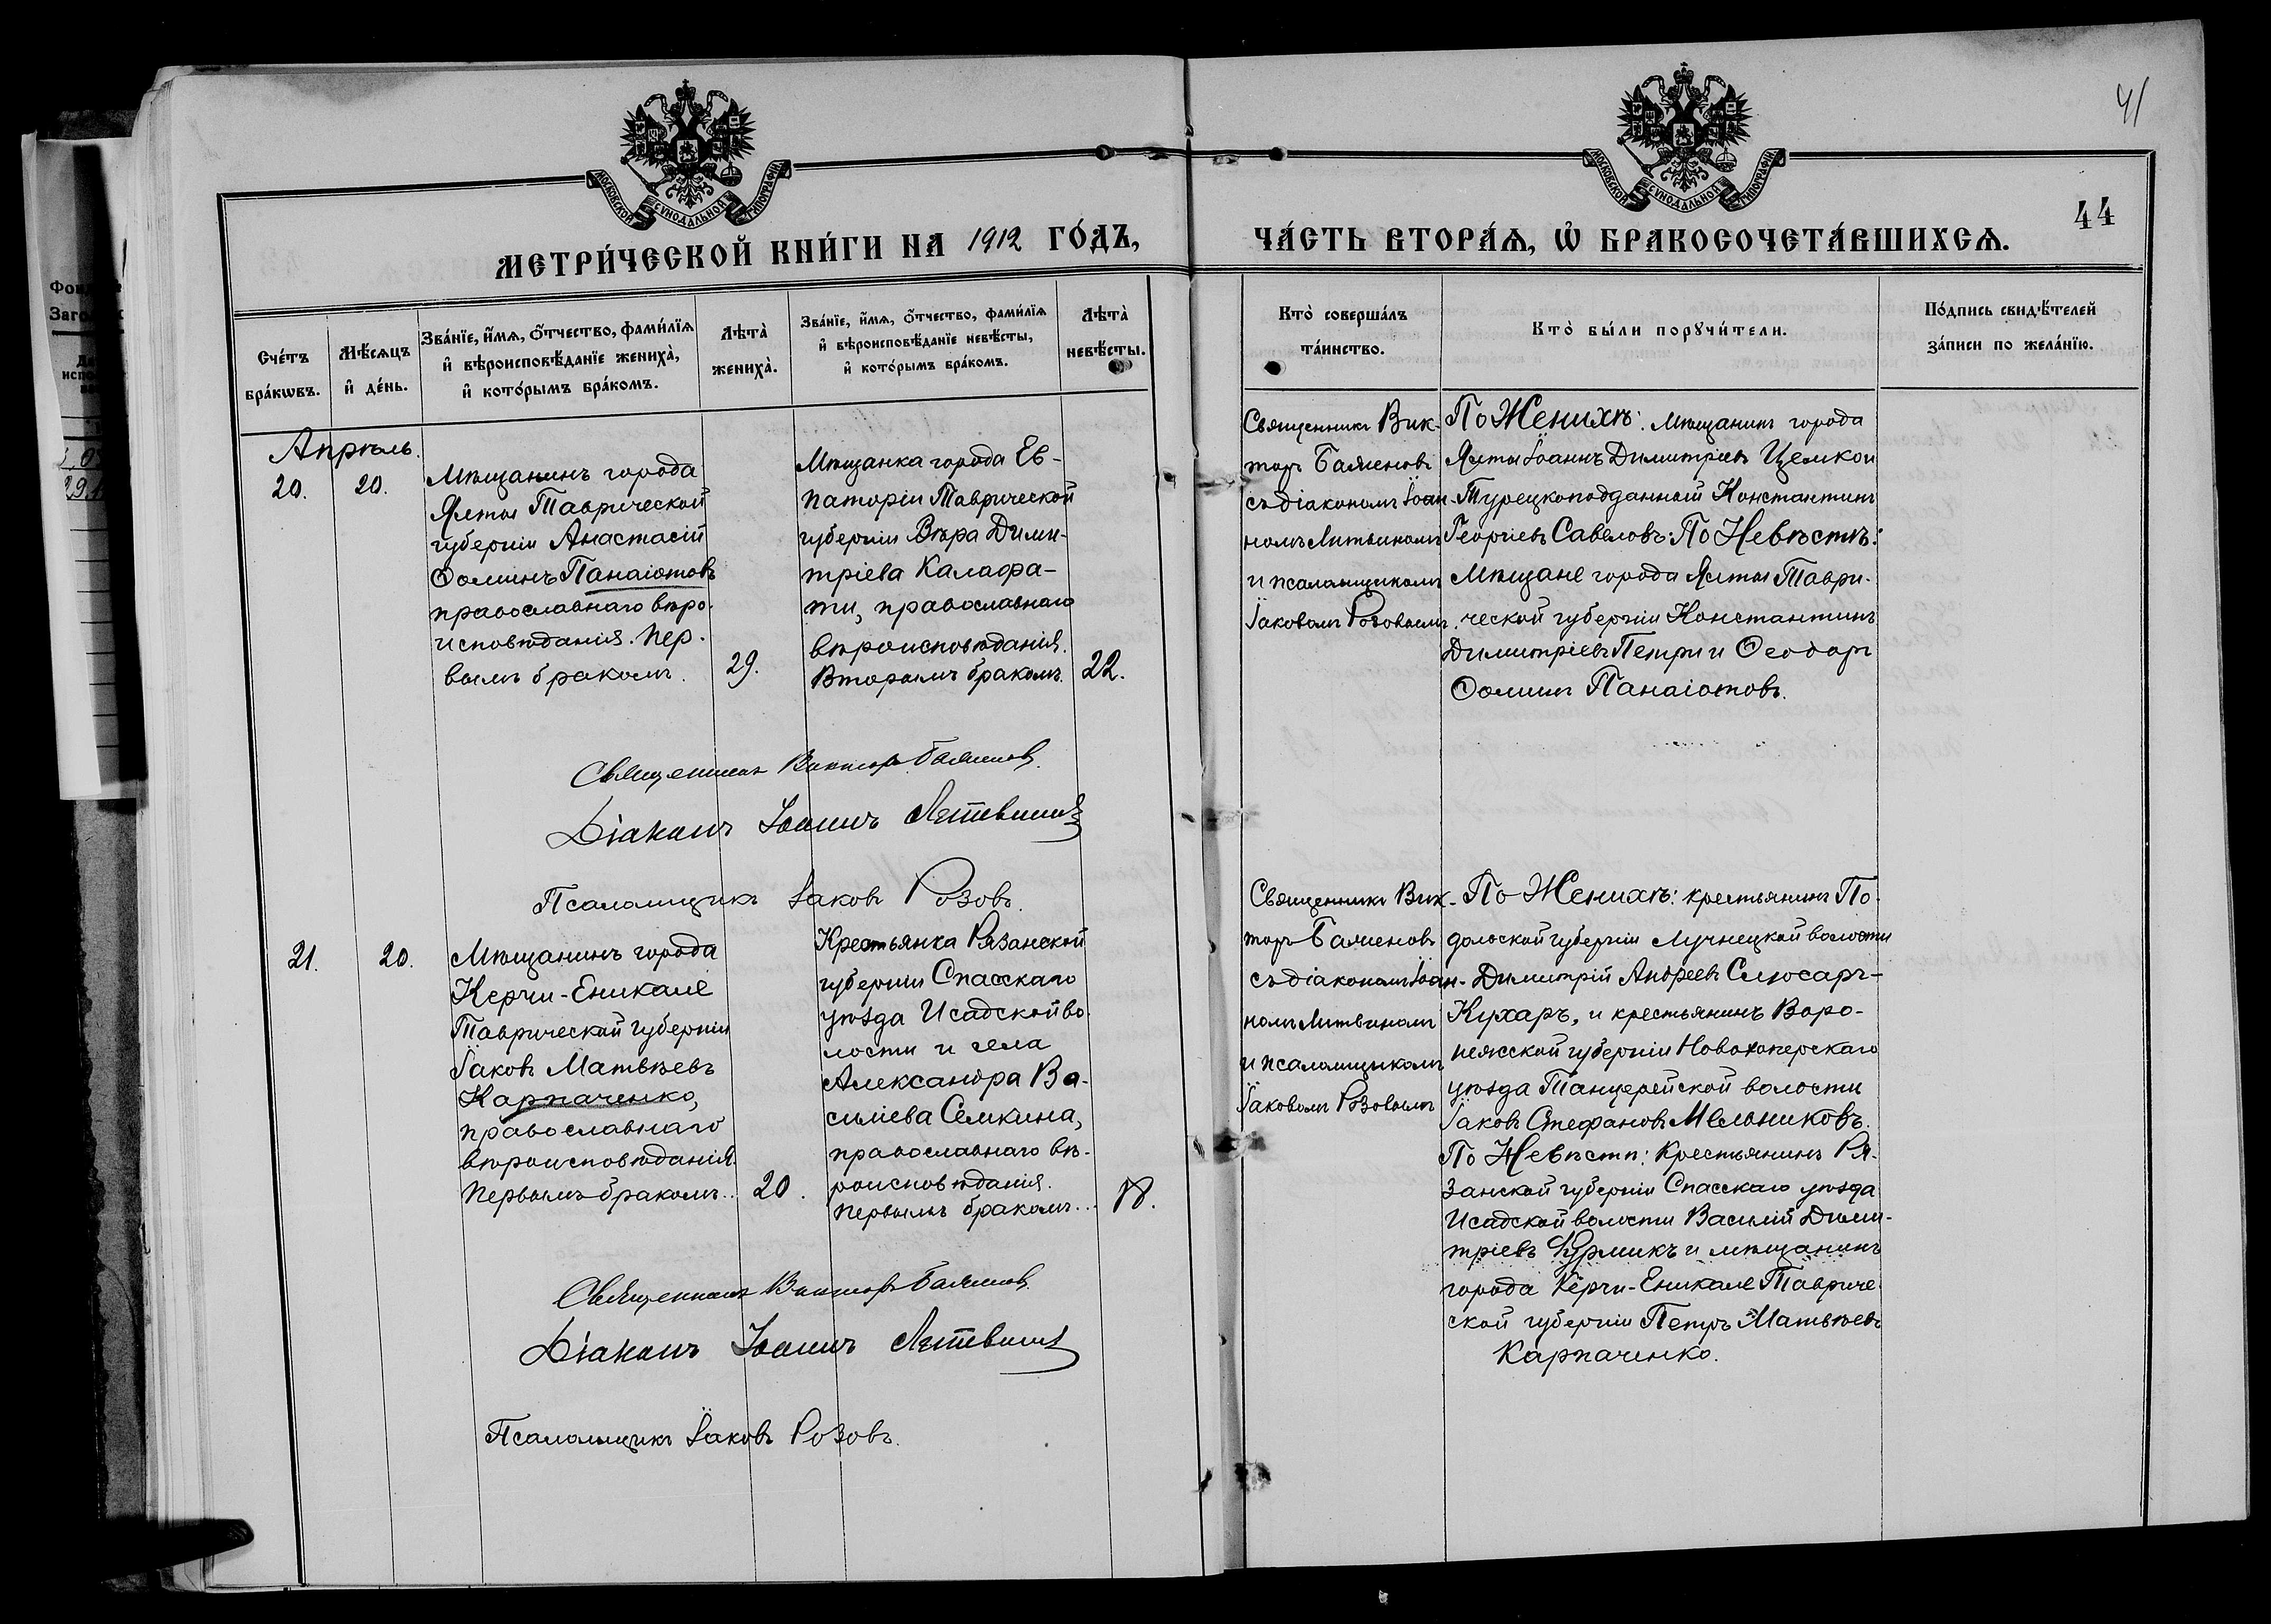 МОСКОВСКОЙ СУНОДАЛЬНОЙ ТИПОГРАФІИ
МОСКОВСКОЙ СУНОДАЛЬНОЙ ТИПОГРАФІИ
41
44
МЕТРИ́ЧЕСКОЙ КНИ́ГИ НА 1912 ГО́ДЪ,
ЧА́СТЬ ВТОРА́Ѧ, Ѽ БРАКОСОЧЕТА́ВШИХСѦ.
Сче́тъ
бра́кѡвъ.
Мѣ́сѧцъ
и҆ де́нь.
Зва́нїе, и҆́мѧ, ѻ҆́тчество, фами́лїѧ
и҆ вѣроисповѣ́данїе жениха̀,
и҆ кото́рымъ бра́комъ.
Лѣта̀
жениха̀.
Зва́нїе, и҆́мѧ, ѻ҆́тчество, фами́лїѧ
и҆ вѣроисповѣ́данїе невѣ́сты,
и҆ кото́рымъ бра́комъ.
Лѣта̀
невѣ́сты.
Кто̀ соверша́лъ
та́инство.
Кто̀ бы́ли порꙋчи́тели.
По́дпись свидѣ́телей
за́писи по жела́нїю.
Апрѣль.
20.
20.
Мѣщанинъ города
Ялты Таврической
губерніи Анастасій
Ѳоминъ Панаіотовъ
православнаго вѣро-
исповѣданія. Пер-
вымъ бракомъ.
29.
Мѣщанка города Ев-
паторіи Таврической
губерніи Вѣра Дими-
тріева Калафа-
ти, православнаго
вѣроисповѣданія.
Вторымъ бракомъ.
22.
Священникъ Вик-
торъ Баженовъ
съ діакономъ Іоан-
номъ Литвиномъ
и псаломщикомъ
Іаковомъ Розовымъ.
По Женихѣ: мѣщанинъ города
Ялты Іоаннъ Димитріевъ
Турецкоподданный Константинъ
Георгіевъ Савеловъ: По Невѣстѣ:
Мѣщане города Ялты Таври-
ческой губерніи Константинъ
Димитріевъ Петри и Ѳеодоръ
Ѳоминъ Панаіотовъ.
Священникъ Викторъ Баженовъ.
Діаконъ Іоаннъ Литвинъ
Псаломщикъ Іаковъ Розовъ.
21.
20.
Мѣщанинъ города
Керчи-Еникале
Таврической губерніи
Іаковъ Матвѣевъ
Карпаченко,
православнаго
вѣроисповѣданія.
Первымъ бракомъ.
20.
Крестьянка Рязанской
губерніи Спасскаго
уѣзда Исадской во-
лости и села
Александра Ва-
силіева Семкина,
православнаго вѣ-
роисповѣданія.
Первымъ бракомъ...
18.
Священникъ Вик-
торъ Баженовъ
съ діакономъ Іоан-
номъ Литвиномъ
и псаломщикомъ
Іаковомъ Розовымъ
По Женихѣ: крестьянинъ По-
дольской губерніи Лучнецкой волости
Димитрій Андреевъ Слюсаръ-
Кухаръ, и крестьянинъ Воро-
нежской губерніи Новохоперскаго
уѣзда Танцерейской волости
Іаковъ Стефановъ Мельниковъ.
По Невѣстѣ: Крестьянинъ Ря-
занской губерніи Спасскаго уѣзда
Исадской волости Василій Дими-
тріевъ и мѣщанинъ
города Керчи-Еникале Тавриче-
ской губерніи Петръ Матвѣевъ
Карпаченко.
Священникъ Викторъ Баженовъ.
Діаконъ Іоаннъ Литвинъ
Псаломщикъ Іаковъ Розовъ.